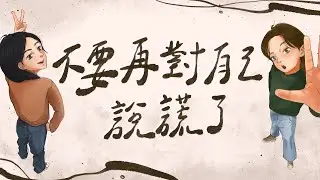 不要再對自己
說謊了